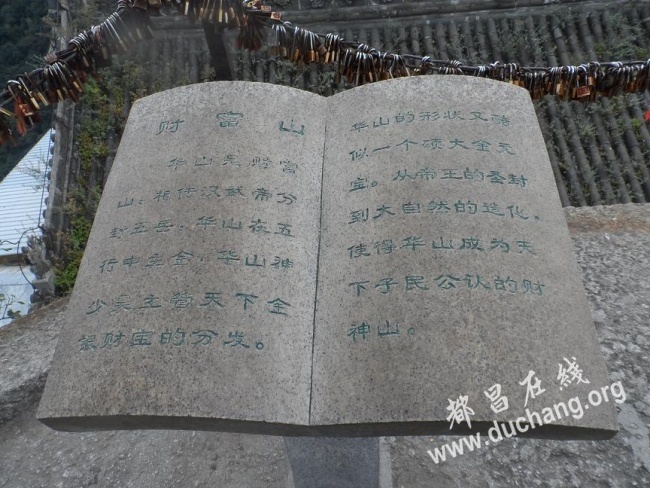 财富山
华山是财富
山：相传汉武帝分
封五岳，华山在五
行中主金，华山神
少昊主管天下金
银财宝的分发。
华山的形状又酷
似一个硕大金元
宝。从帝王的圣封
到大自然的造化，
使得华山成为天
下子民公认的财
神山。
都昌在线
www.duchang.org